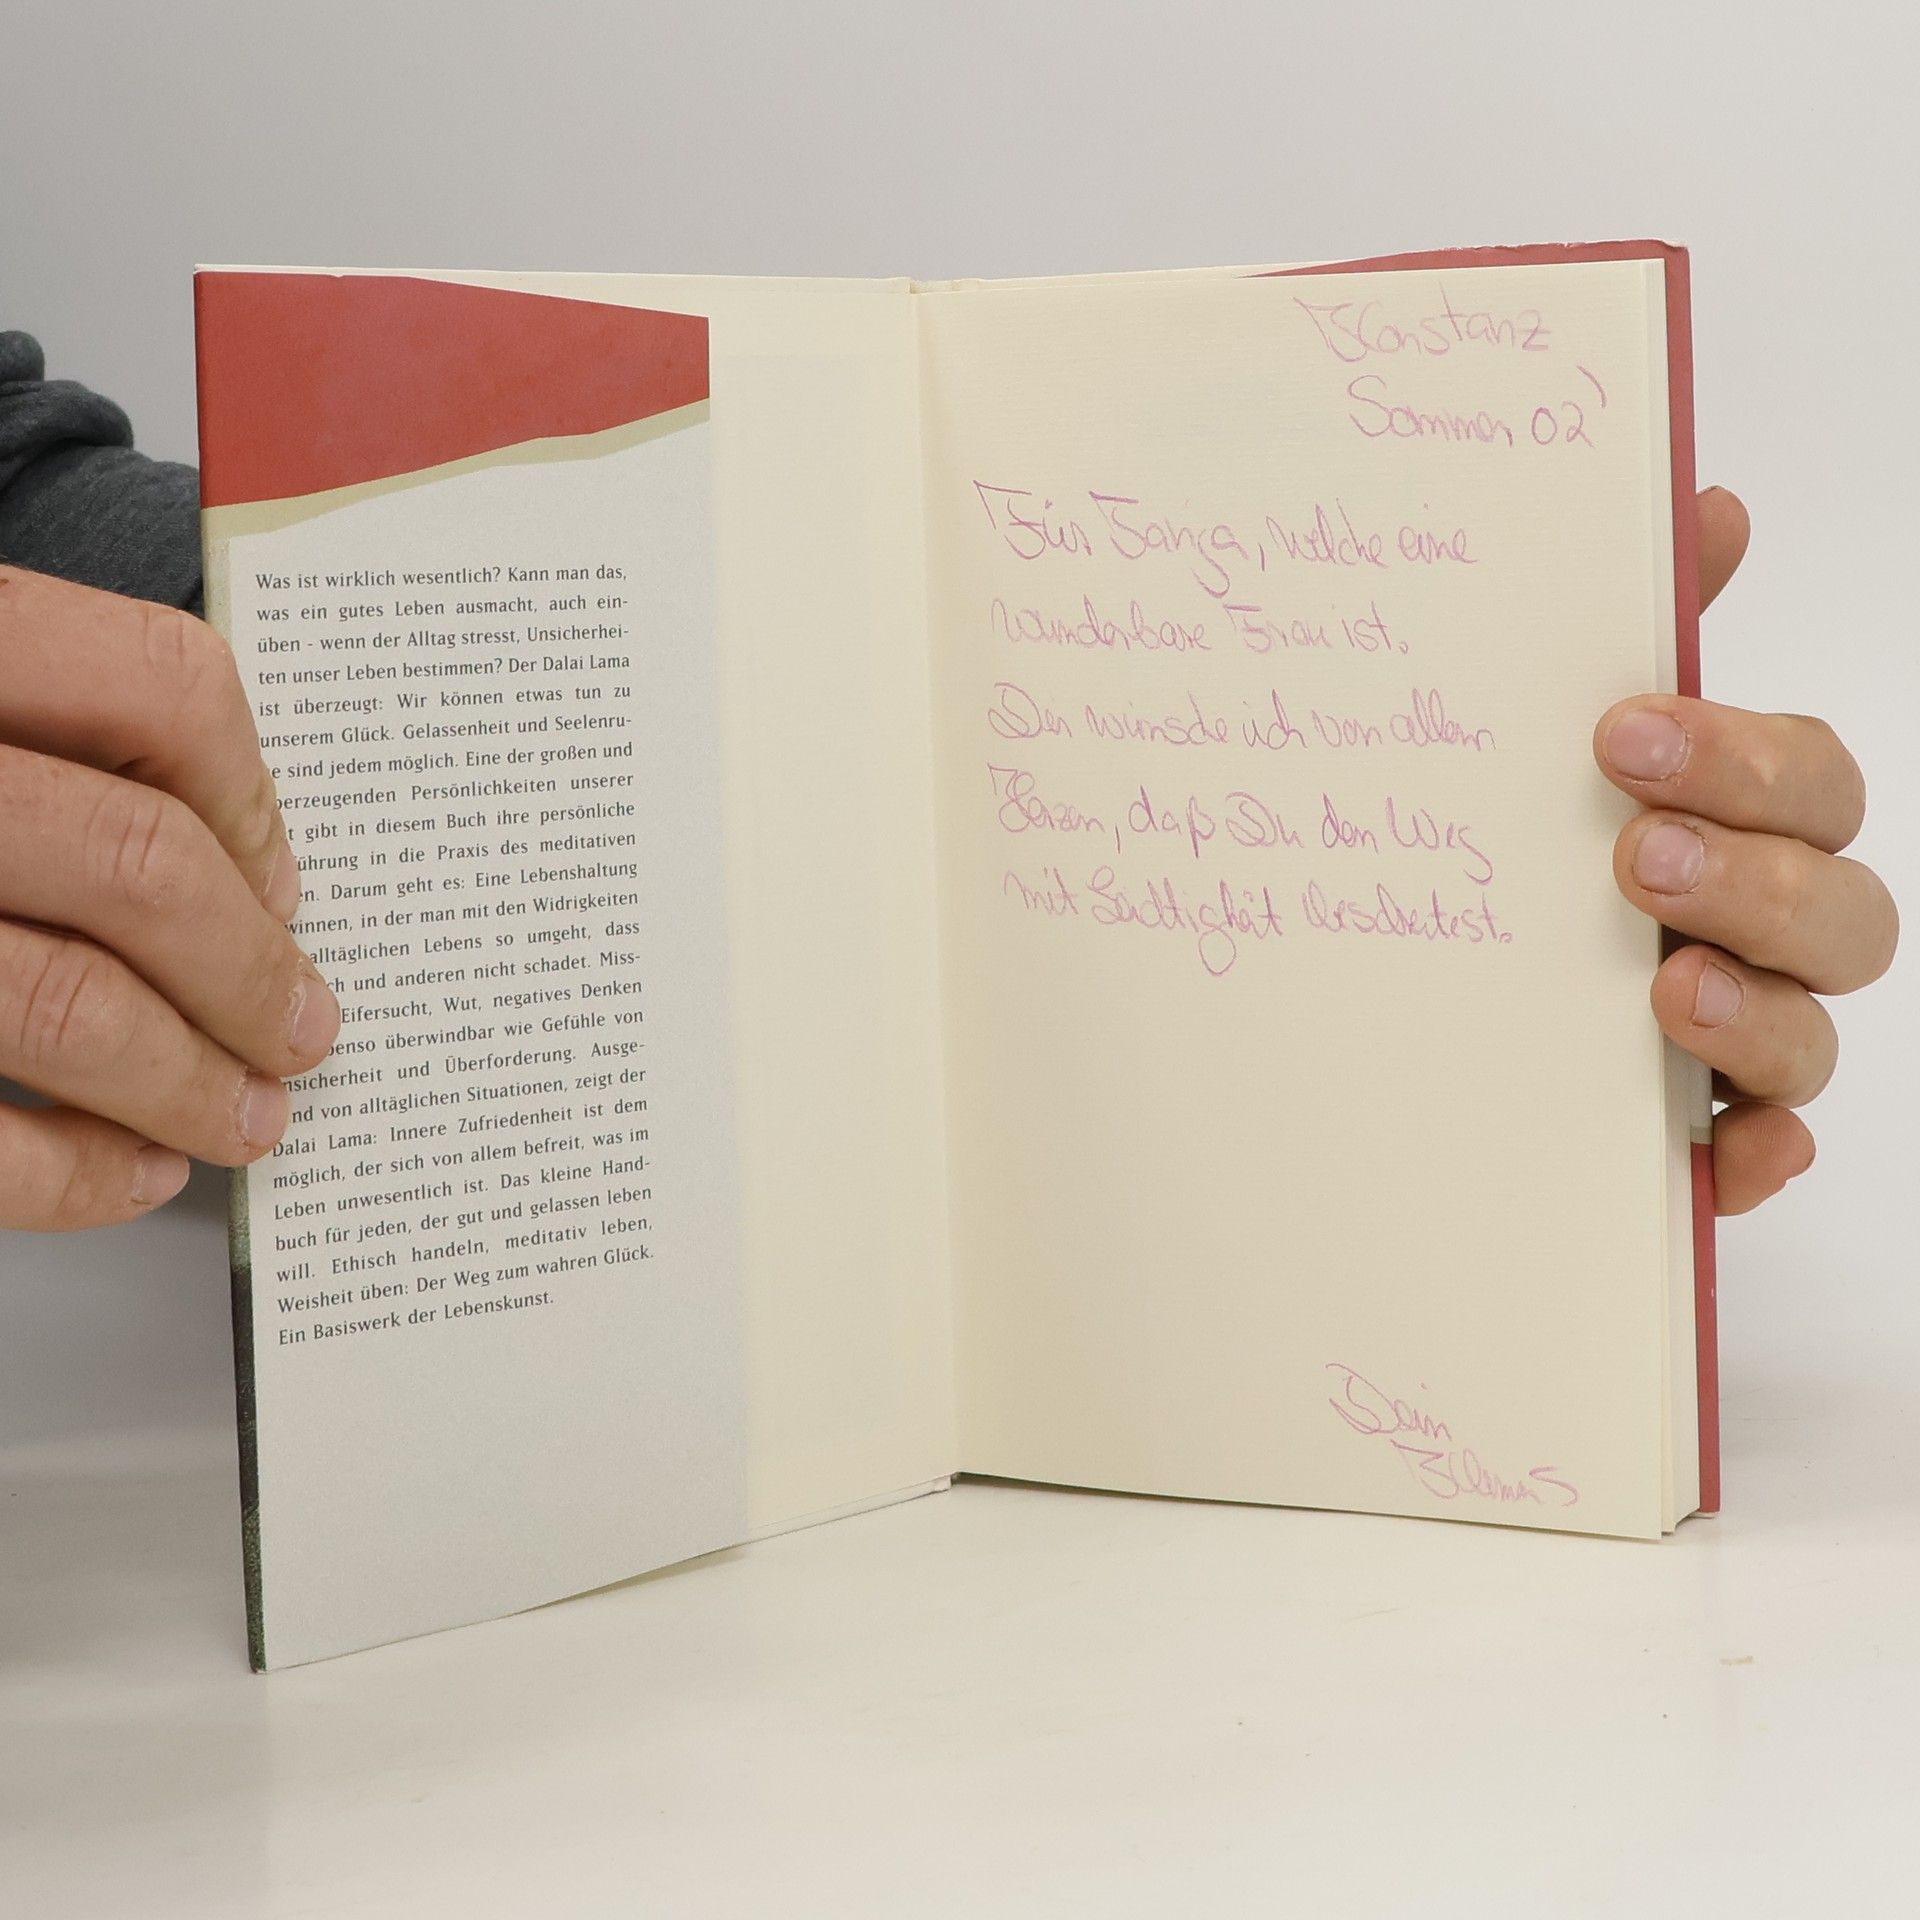 Was ist wirklich wesentlich? Kann man das,
was ein gutes Leben ausmacht, auch ein-
üben - wenn der Alltag stresst, Unsicherhei-
ten unser Leben bestimmen? Der Dalai Lama
ist überzeugt: Wir können etwas tun zu
unserem Glück. Gelassenheit und Seelenru-
e sind jedem möglich. Eine der großen und
berzeugenden Persönlichkeiten unserer
t gibt in diesem Buch ihre persönliche
führung in die Praxis des meditativen
en. Darum geht es: Eine Lebenshaltung
winnen, in der man mit den Widrigkeiten
alltäglichen Lebens so umgeht, dass
ch und anderen nicht schadet. Miss-
Eifersucht, Wut, negatives Denken
benso überwindbar wie Gefühle von
nsicherheit und Überforderung. Ausge-
nd von alltäglichen Situationen, zeigt der
Dalai Lama: Innere Zufriedenheit ist dem
möglich, der sich von allem befreit, was im
Leben unwesentlich ist. Das kleine Hand-
buch für jeden, der gut und gelassen leben
will. Ethisch handeln, meditativ leben,
Weisheit üben: Der Weg zum wahren Glück.
Ein Basiswerk der Lebenskunst.
Konstanz
Sommer 02'
Für Tanja, welche eine
wunderbare Frau ist.
wünsche ich von allem
Herzen, daß Du den Weg
mit Leichtigkeit beschreitest.
Dein